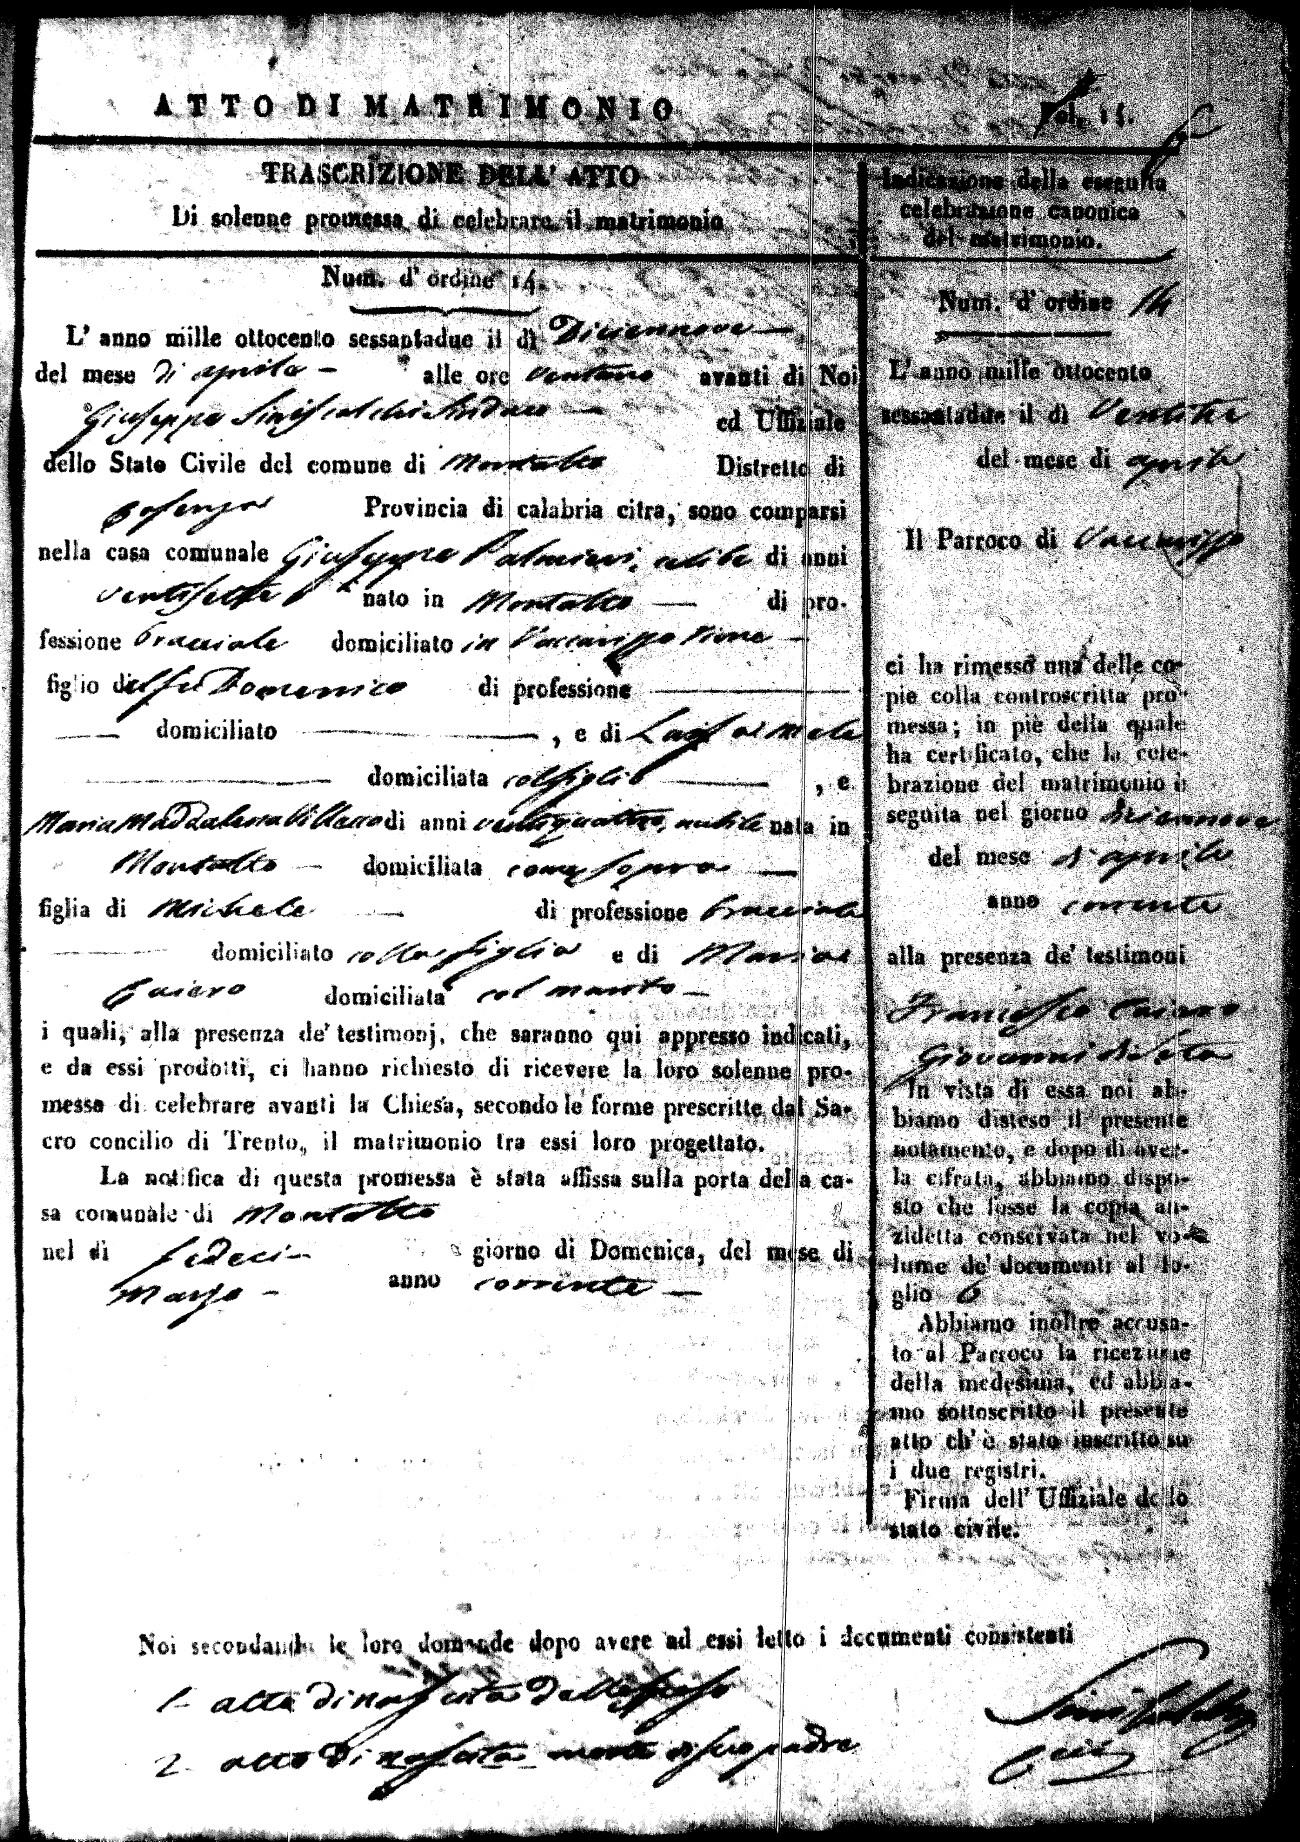 ATTO DI MATRIMONIO
Fol. 14.
6
TRASCRIZIONE DELL' ATTO
Di solenne promessa di celebrare il matrimonio
Num. d' ordine 14.
L' anno mille ottocento sessantadue il dì Diciannove
del mese di aprile alle ore ventuno avanti di Noi
Giuseppe Siniscalchi Sindaco ed Uffiziale
dello Stato Civile del comune di Montalto Distretto di
Cosenza Provincia di calabria citra, sono comparsi
nella casa comunale Giuseppe Palmieri, celibe di anni
ventisette nato in Montalto di pro-
fessione bracciale domiciliato in Vaccarizzo
figlio del fu Domenico di professione
domiciliato , e di di Mele
domiciliata col figlio , e
Maria Maddalena Villano di anni ventiquattro, nubile nata in
Montalto domiciliata come sopra
figlia di Michele di professione bracciale
domiciliato colla figlia e di Maria
Caiero domiciliata col marito
i quali, alla presenza de' testimonj, che saranno qui appresso indicati,
e da essi prodotti, ci hanno richiesto di ricevere la loro solenne pro-
messa di celebrare avanti la Chiesa, secondo le forme prescritte dal Sa-
cro concilio di Trento, il matrimonio tra essi loro progettato.
La notifica di questa promessa è stata affissa sulla porta della ca-
sa comunale di Montalto
nel dì sedeci giorno di Domenica, del mese di
Marzo anno corrente
Indicazione della eseguita
celebrazione canonica
del matrimonio.
Num. d' ordine 14
L' anno mille ottocento
sessantadue il dì Ventitre
del mese di aprile
Il Parroco di Vaccarizzo
ci ha rimesso una delle co-
pie colla controscritta pro-
messa; in piè della quale
ha certificato, che la cele-
brazione del matrimonio è
seguita nel giorno diciannove
del mese d'aprile
anno corrente
alla presenza de' testimoni
Francesco Caiero
Giovanni di Seta
In vista di essa noi ab-
biamo disteso il presente
notamento, e dopo di aver-
la cifrata, abbiamo dispo-
sto che fosse la copia an-
zidetta conservata nel vo-
lume de' documenti al fo-
glio 6
Abbiamo inoltre accusa-
to al Parroco la ricezione
della medesima, ed abbia-
mo sottoscritto il presente
atto ch' è stato inscritto su
i due registri.
Firma dell' Uffiziale dello
stato civile.
Noi secondando le loro domande dopo avere ad essi letto i documenti consistenti
1- atto di nascita dello sposo
2- atto di morte di suo padre